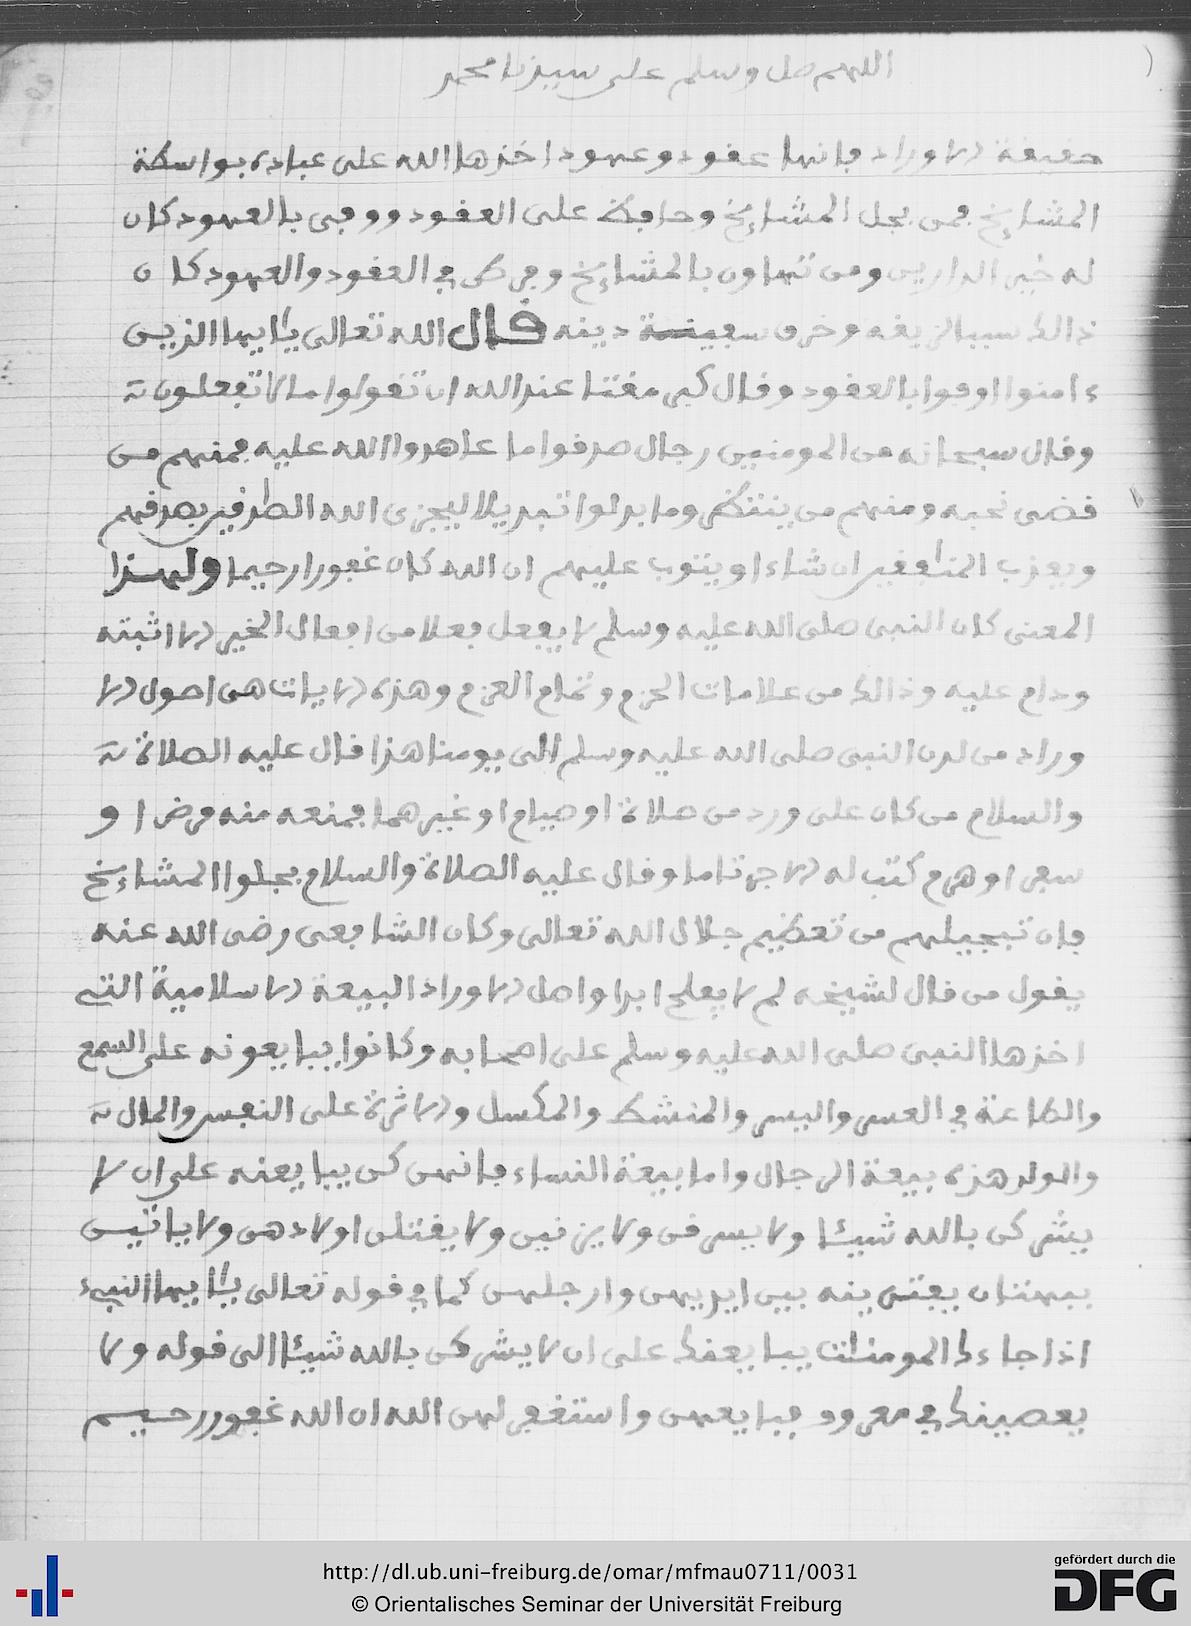 اللهم صل وسلم على سيدنا محمد
حقيقة الاوراد فإنها عقود وعهود اخذها الله على عباده بواسطة
المشايخ فمن بجل المشايخ وحافظ على العقود ووفى بالعهود كان
له خير الدارين ومن تهاون بالمشايخ وفرط في العقود والعهود كان
ذالك سببا لزيغه وخرق سفينة دينه قال الله تعالى يا ايها الذين
ءامنوا اوفوا بالعقود وقال كبر مقتا عند الله ان تقولوا ما لا تفعلون
وقال سبحانه من المومنين رجال صدقوا ما عاهدوا الله عليه فمنهم من
قضى نحبه ومنهم من ينتظر وما بدلوا تبديلا ليجزي الله الصدقين بصدقهم
ويعذب المنفقين ان شاء او يتوب عليهم ان الله كان غفورا رحيما ولهذا
المعنى كان النبي صلى الله عليه وسلم لا يفعل فعلا من افعال الخير الا اثبته
ودام عليه وذالك من علامات الحزم وتمام العزم وهذه الايات هي اصول الا
وراد من لدن النبي صلى الله عليه وسلم الى يومنا هذا قال عليه الصلاة
والسلام من كان على ورد من صلاة او صيام او غيرهما فمنعه منه مرض او
سفر او هرم كتب له الاجر تاما وقال عليه الصلاة والسلام بجلوا المشايخ
فإن تبجيلهم من تعظيم جلال الله تعالى وكان الشافعي رضي الله عنه
يقول من قال لشيخه لم لا يفلح ابدا واصل الاوراد البيعة الاسلامية التي
اخذها النبي صلى الله عليه وسلم على اصحابه وكانوا يبايعونه على السمع
والطاعة في العسر واليسر والمنشط والمكسل والاثرة على النفس والمال
والولد هذه بيعة الرجال واما بيعة النساء فإنهن كن يبايعنه على ان لا
يشركن بالله شيئا ولا يسرقن ولا يزنين ولا يقتلن اولادهن ولا ياتين
ببهتان يفترينه بين ايديهن وارجلهن كما في قوله تعالى يا ايها النبيء
اذا جاءك المومنات يبايعنك على ان لا يشركن بالله شيئا الى قوله ولا
يعصينك في معروف فبايعهن واستغفر لهن الله ان الله غفور رحيم
http://dl.ub.uni-freiburg.de/omar/mfmau0711/0031
© Orientalisches Seminar der Universität Freiburg
gefördert durch die
DFG